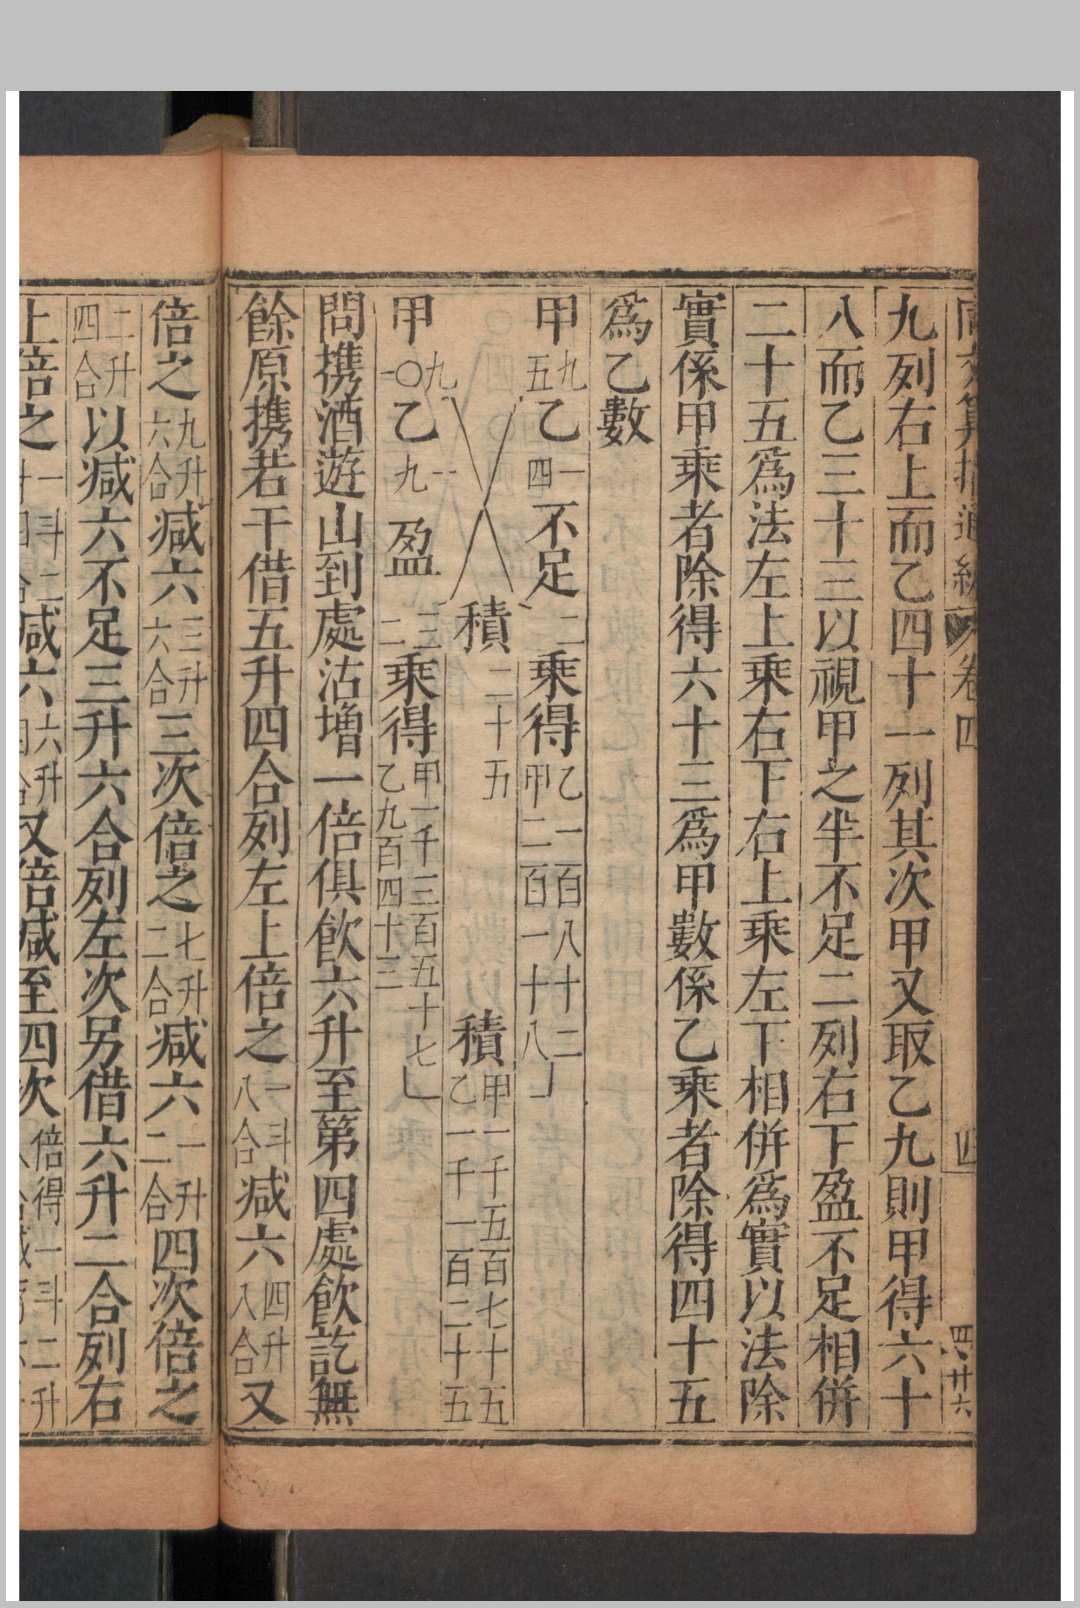 同文算指通編 卷四 四 四 廿六
九列右上而乙四十一列其次甲又取乙九則甲得六十
八而乙三十三以視甲之半不足二列右下盈不足相併
二十五爲法左上乘右下右上乘左下相併爲實以法除
實係甲乘者除得六十三爲甲數係乙乘者除得四十五
爲乙數
甲五九乙四一不足二乘得乙一百八十二甲二百一十八
積二十五 積甲一千五百七十五乙一千一百二十五
甲一〇九乙九一盈二三乘得甲一千三百五十七乙九百四十三
問携酒遊山到處沽增一倍俱飲六升至第四處飲訖無
餘原携若干借五升四合列左上倍之一斗八合减六四升八合又
倍之九升六合减六三升六合三次倍之七升二合减六一升二合四次倍之
二升四合以减六不足三升六合列左次另借六升二合列右
上倍之 减六 又倍减至四次